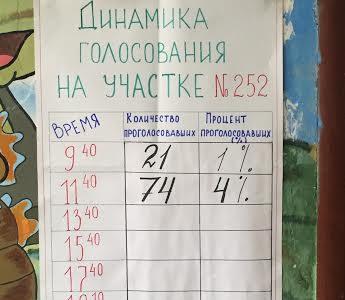 Динамика
голосования
на участке № 252
Время Количество проголосовавших Процент проголосовавших (%)
9 40 21 1%
11 40 74 4%
13 40
15 40
17 40